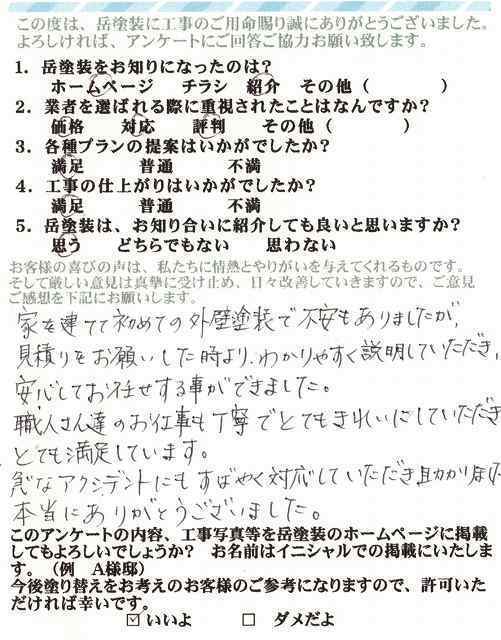 この度は、岳塗装に工事のご用命賜り誠にありがとうございました。
よろしければ、アンケートにご回答ご協力お願い致します。
1．岳塗装をお知りになったのは？
ホームページ　チラシ　紹介　その他（　　　　）
2．業者を選ばれる際に重視されたことはなんですか？
価格　　対応　　評判　　その他（　　　　）
3．各種プランの提案はいかがでしたか？
満足　　普通　　不満
4．工事の仕上がりはいかがでしたか？
満足　　普通　　不満
5．岳塗装は、お知り合いに紹介しても良いと思いますか？
思う　　どちらでもない　　思わない
お客様の喜びの声は、私たちに情熱とやりがいを与えてくれるものです。
そして厳しい意見は真摯に受け止め、日々改善していきますので、ご意見
ご感想を下記にお願いします。
家を建てて初めての外壁塗装で不安もありましたが、
見積りをお願いした時より、わかりやすく説明していただき、
安心してお任せする事ができました。
職人さん達のお仕事も丁寧でとてもきれいにしていただき
とても満足しています。
急なアクシデントにもすばやく対応していただき助かりました
本当にありがとうございました。
このアンケートの内容、工事写真等を岳塗装のホームページに掲載
してもよろしいでしょうか？　お名前はイニシャルでの掲載にいたしま
す。（例　A様邸）
今後塗り替えをお考えのお客様のご参考になりますので、許可いた
だければ幸いです。
☑ いいよ　　□ ダメだよ